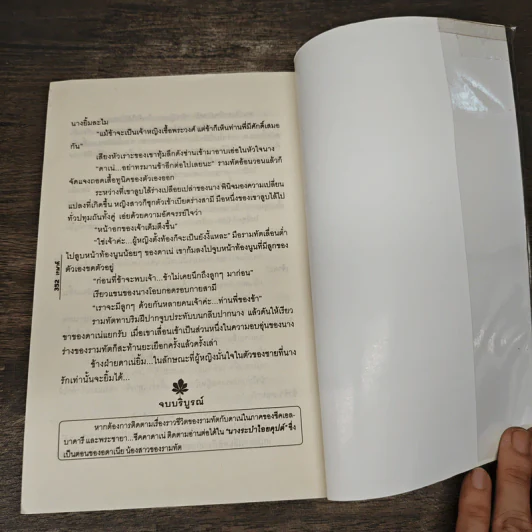 นางยิ้มละไม
"แม้ข้าจะเป็นเจ้าหญิงเชื้อพระวงศ์ แต่ข้าก็เห็นท่านที่มีศักดิ์เสมอ
กัน"
เสียงหัวเราะของเขาทุ้มลึกดังซ่านเข้ามาอาบเอ่อในหัวใจนาง
"ดาเน่...อย่าทรมานข้าอีกต่อไปเลยนะ" รามทัตอ้อนวอนแล้วก็
จัดแจงถอดเสื้อทูนิคของตัวเองออก
ระหว่างที่เขาลูบไล้ร่างเปลือยเปล่าของนาง พินิจมองความเปลี่ยน
แปลงที่เกิดขึ้น หญิงสาวก็ซุกตัวเข้าเบียดร่างสามี มือหนึ่งของเขาลูบไล้ไป
ทั่วปทุมถันทั้งคู่ เอ่ยด้วยความอัศจรรย์ใจว่า
"หน้าอกของเจ้าเต็มตึงขึ้น"
"ใช่เจ้าค่ะ...ผู้หญิงตั้งท้องก็จะเป็นยังงี้แหละ" มือรามทัตเลื่อนต่ำ
ไปลูบหน้าท้องนูนน้อยๆ ของดาเน่ เขาก้มลงไปจูบหน้าท้องนูนที่มีลูกของ
ตัวเองขดตัวอยู่
"ก่อนที่ข้าจะพบเจ้า...ข้าไม่เคยนึกถึงลูกๆ มาก่อน"
เรียวแขนของนางโอบกอดรอบกายสามี
"เราจะมีลูกๆ ด้วยกันหลายคนเจ้าค่ะ...ท่านพี่ของข้า"
รามทัตทาบริมฝีปากจูบประทับบนกลีบปากนาง แล้วดันให้เรียว
ขาของดาเน่แยกรับ เมื่อเขาเลื่อนเข้าเป็นส่วนหนึ่งในความอบอุ่นของนาง
ร่างของรามทัตก็สะท้านยะเยือกครั้งแล้วครั้งเล่า
ข้างฝ่ายดาเน่ยิ้ม...ในลักษณะที่ผู้หญิงมั่นใจในตัวของชายที่นาง
รักเท่านั้นจะยิ้มได้...
จบบริบูรณ์
หากต้องการติดตามเรื่องราวชีวิตของรามทัตกับดาเน่ในภาคของชีคเอล-
บาคารี และพระชายา...ชีคคาดาเน่ ติดตามอ่านต่อได้ใน "นางระบำไอยคุปต์" ซึ่ง
เป็นตอนของอดาเนีย น้องสาวของรามทัต
352